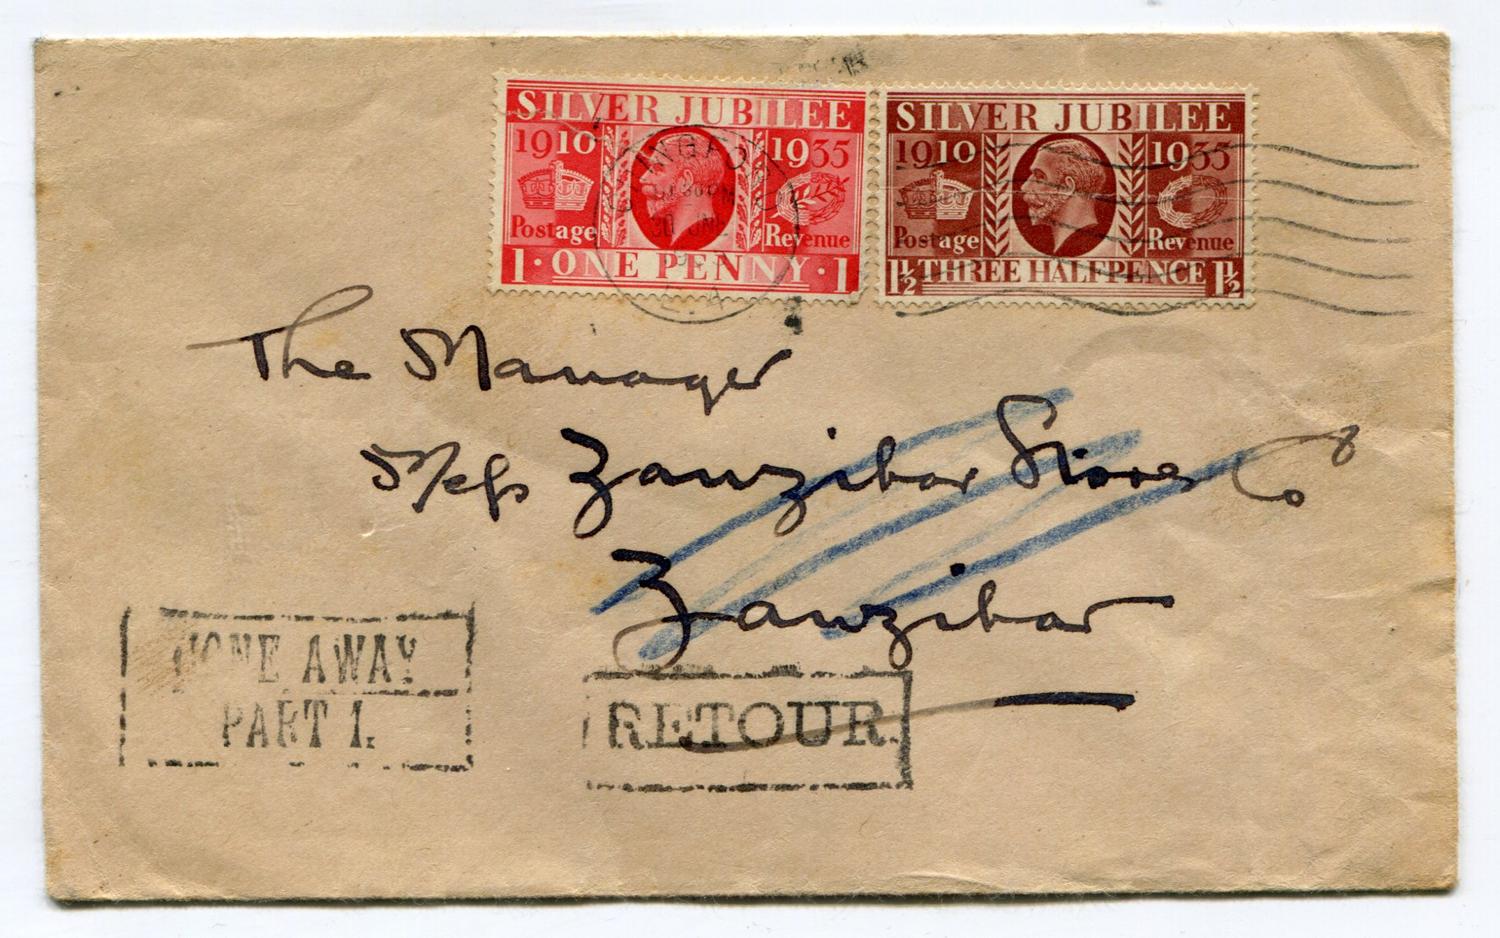 SILVER JUBILEE
1910 1935
Postage Revenue
1 · ONE PENNY · 1
SILVER JUBILEE
1910 1935
Postage Revenue
1½ THREE HALFPENCE 1½
30 JUNE
The Manager
Zanzibar Stores Co
Zanzibar
GONE AWAY
PART 1.
RETOUR